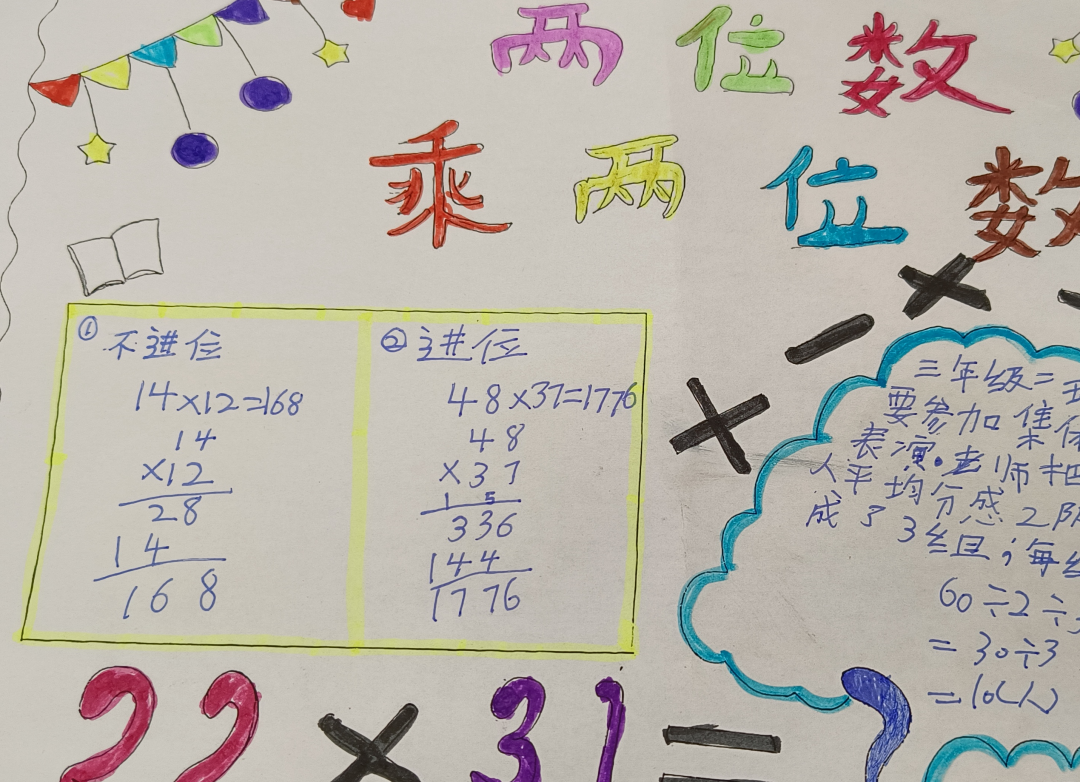 两位数
乘两位数
① 不进位
14×12=168
14
×12
28
14
168
② 进位
48×37=1776
48
×37
1 5
336
144
1776
三年级二
要参加集体
表演。老师把
人平均分感2队
成了3组;每组
60÷2÷3
=30÷3
=10(人)
22×31=?